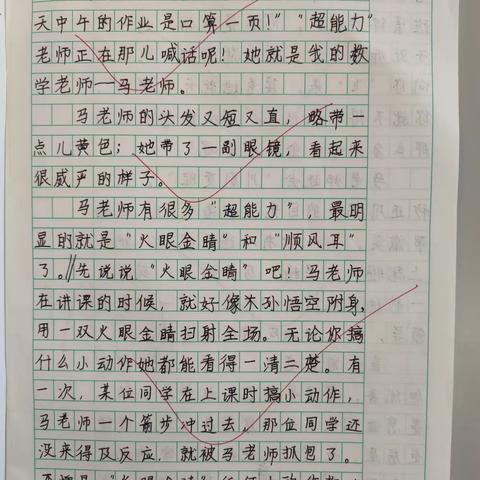 天中午的作业是口算一页！”“超能力”
老师正在那儿喊话呢！她就是我的数
学老师一马老师。
马老师的头发又短又直，略带一
点儿黄色；她带了一副眼镜，看起来
很威严的样子。
马老师有很多“超能力”，最明
显的就是“火眼金睛”和“顺风耳”
了。//先说说“火眼金睛”吧！马老师
在讲课的时候，就好像木孙悟空附身，
用一双火眼金睛扫射全场。无论你搞
什么小动作她都能看得一清二楚。有
一次，某位同学在上课时搞小动作，
马老师一个箭步冲过去，那位同学还
没来得及反应，就被马老师抓包了。